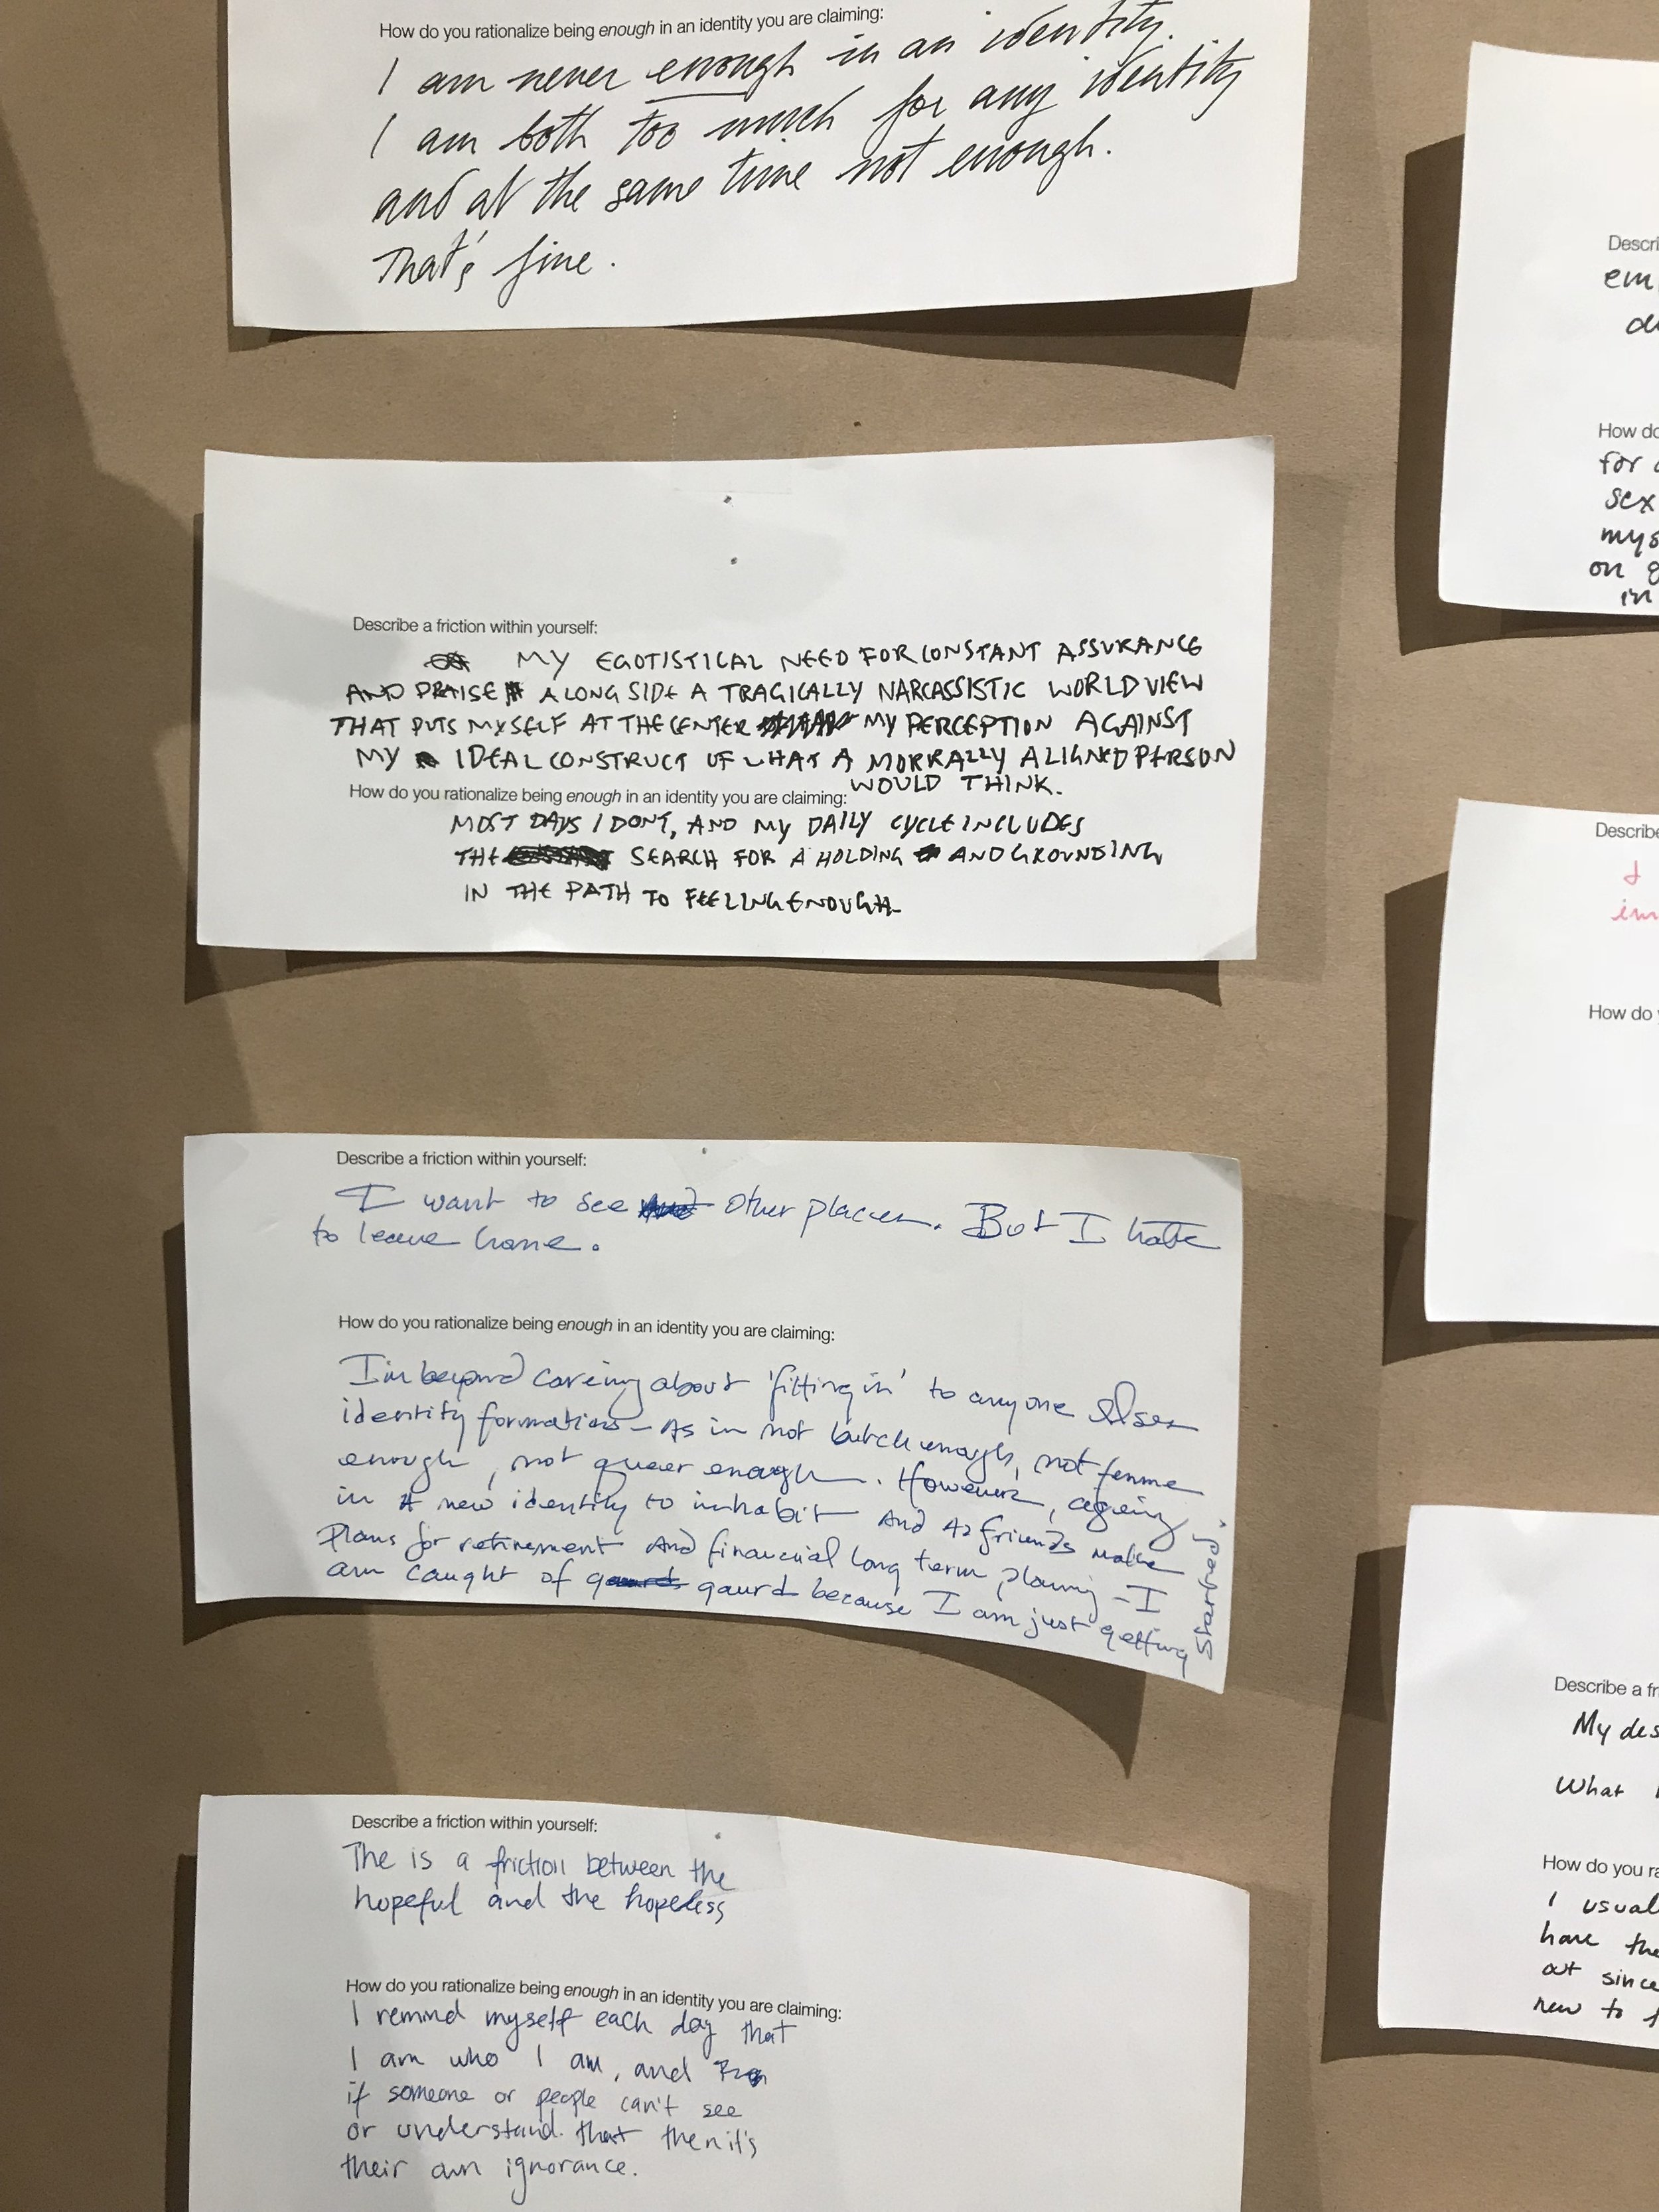 How do you rationalize being enough in an identity you are claiming:
I am never enough in an identity.
I am both too much for any identity
and at the same time not enough.
That's fine.
Describe a friction within yourself:
MY EGOTISTICAL NEED FOR CONSTANT ASSURANCE
AND PRAISE ALONG SIDE A TRAGICALLY NARCASSISTIC WORLD VIEW
THAT PUTS MYSELF AT THE CENTER MY PERCEPTION AGAINST
MY IDEAL CONSTRUCT OF WHAT A MORRALLY ALIGNED PERSON
WOULD THINK.
How do you rationalize being enough in an identity you are claiming:
MOST DAYS I DONT, AND MY DAILY CYCLE INCLUDES
THE SEARCH FOR A HOLDING AND GROUNDING
IN THE PATH TO FEELING ENOUGH
Describe a friction within yourself:
I want to see other places. But I hate
to leave home.
How do you rationalize being enough in an identity you are claiming:
I'm beyond careing about 'fitting in' to anyone elses
identity formations - As in not butch enough, not femme
enough, not queer enough. However, ageing
is A new identity to inhabit And as friends make
Plans for retirement And financial long term planing - I
am caught of gaurd because I am just getting
started.
Describe a friction within yourself:
The is a friction between the
hopeful and the hopeless
How do you rationalize being enough in an identity you are claiming:
I remind myself each day that
I am who I am, and
if someone or people can't see
or understand that then it's
their own ignorance.
Descri
em
How do
for
sex
mys
on
in
Describe
I
im
How do
Describe a fr
My des
What
How do you ra
I usual
have the
out since
new to